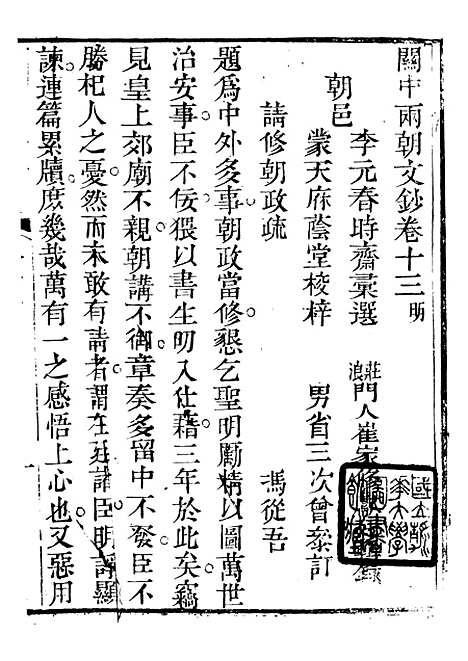 關中兩朝文鈔卷十三 明
朝邑
李元春時齋彙選
蒙天庥蔭堂校梓
莊浪門人崔家
男省三次曾黎訂
請修朝政疏
馮從吾
題爲中外多事朝政當修懇乞聖明勵精以圖萬世
治安事臣不佞猥以書生叨入仕籍三年於此矣竊
見皇上郊廟不親朝講不御章奏多留中不發臣不
勝杞人之憂然而未敢有請者謂在廷諸臣明諍顯
諫連篇累牘庶幾哉萬有一之感悟上心也又惡用